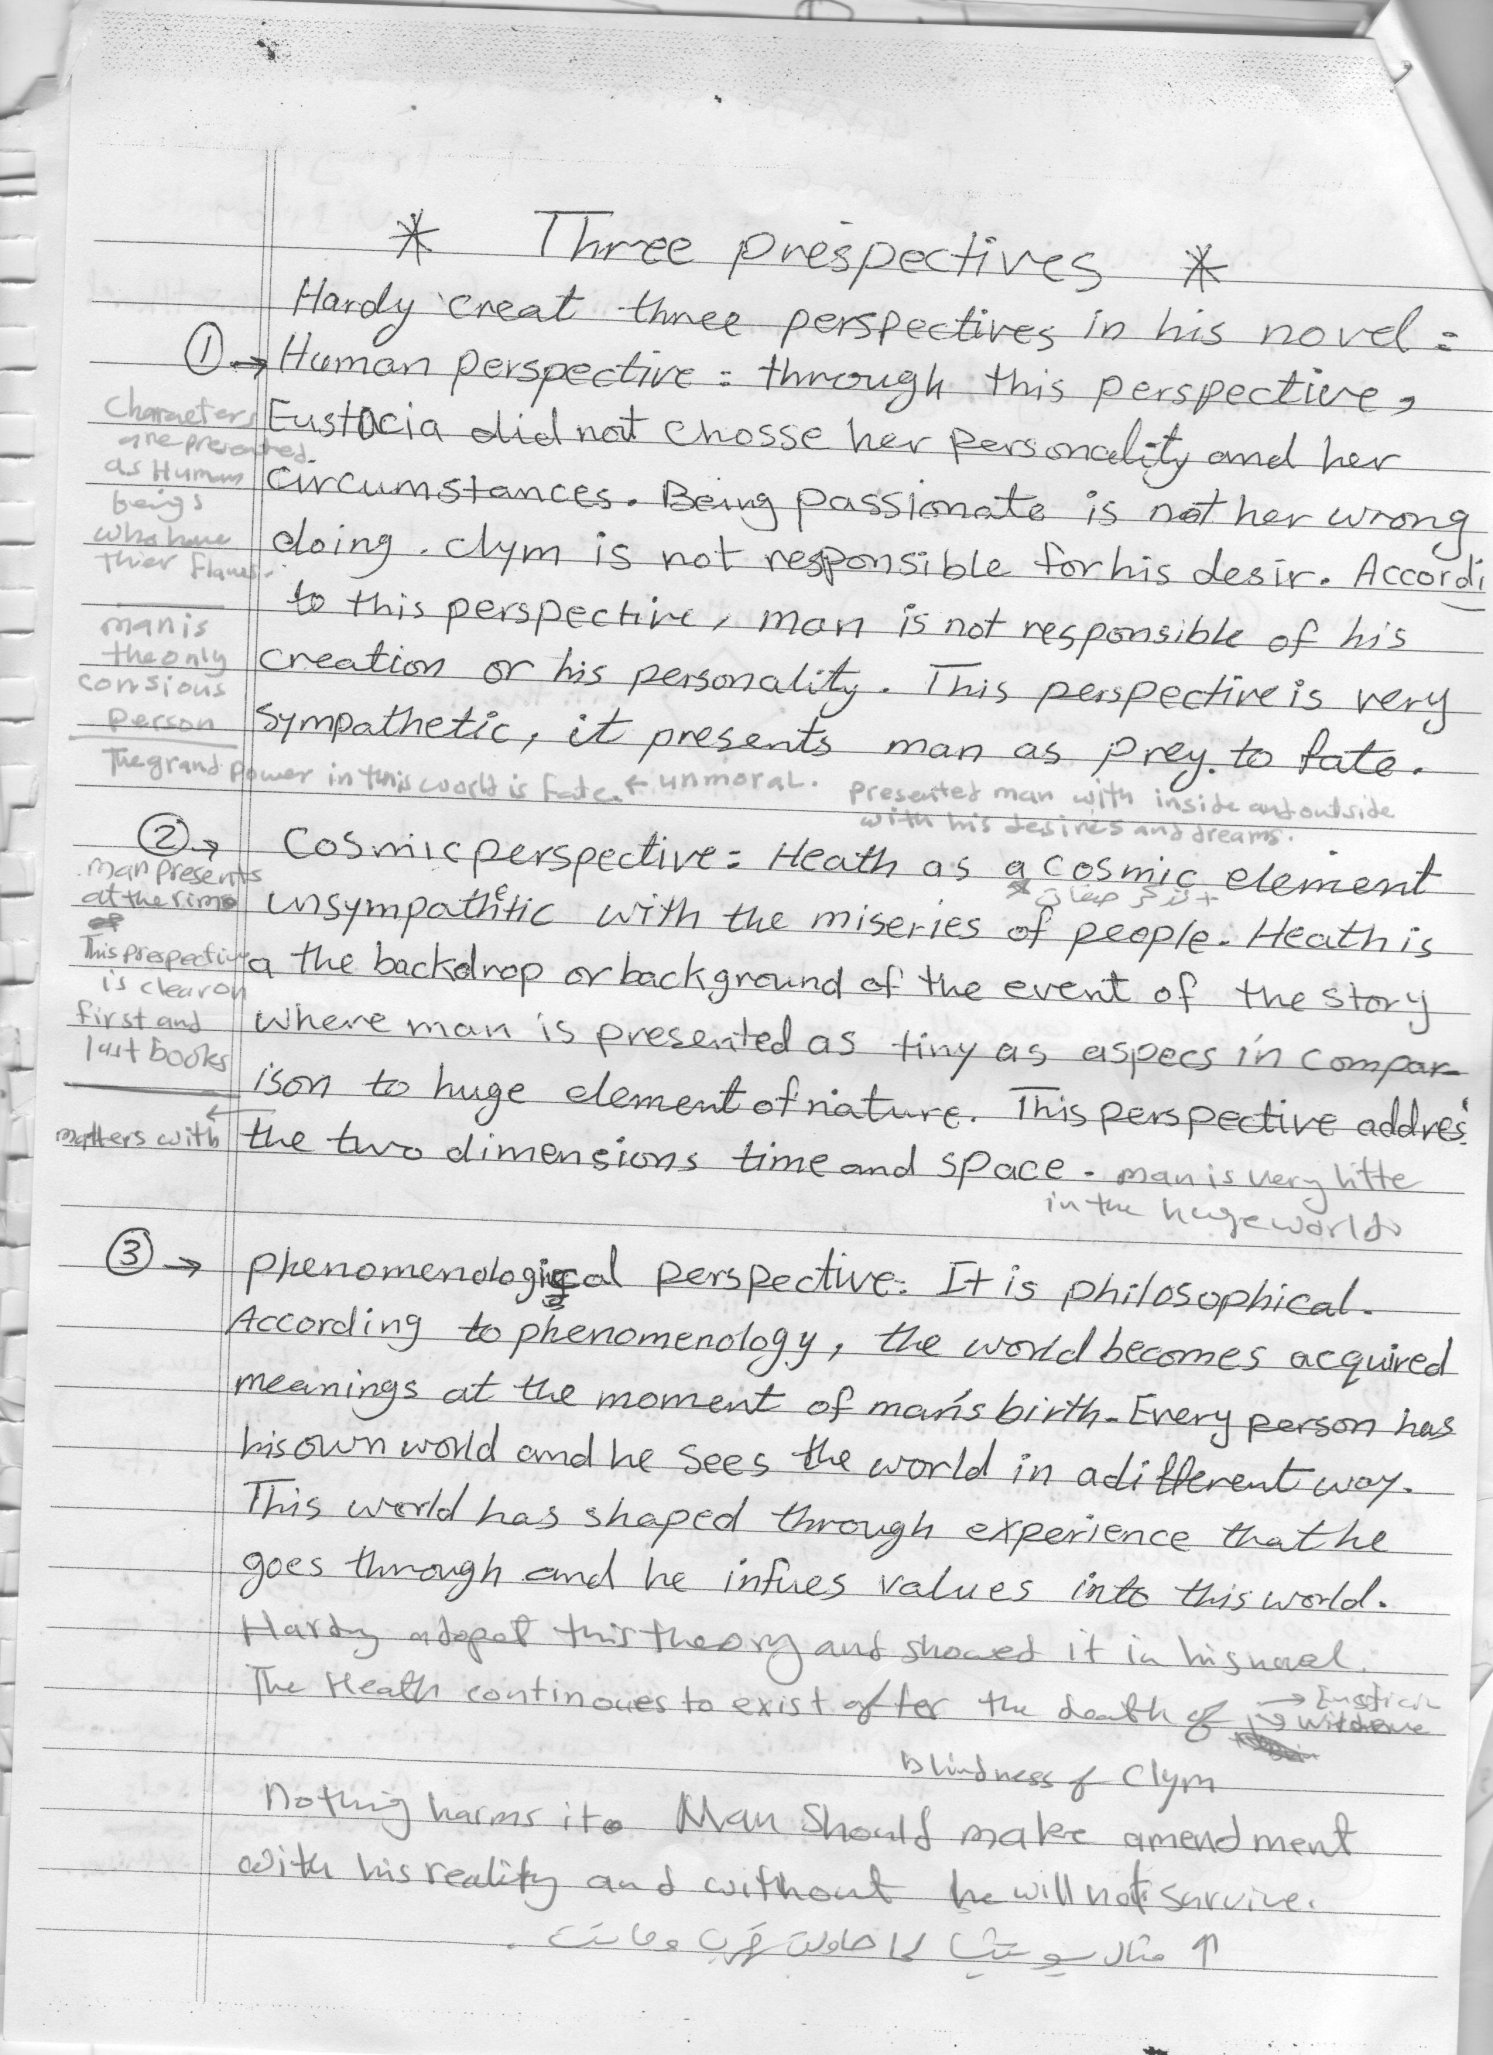 * Three prespectives *
Hardy creat three perspectives in his novel :
① → Human perspective : through this perspective,
Eustacia did not chosse her personality and her
circumstances. Being passionate is not her wrong
doing. Clym is not responsible for his desir. Accordi
to this perspective, man is not responsible of his
creation or his personality. This perspective is very
sympathetic, it presents man as prey. to fate.
Characters
are presented
as Human
beings
who have
thier flaws.
man is
the only
consious
person
The grand power in this world is fate. ← unmoral.
presented man with inside and outside
with his desires and dreams.
② → Cosmic perspective : Heath as a cosmic element
+ تذكر صفات
unsympathetic with the miseries of people. Heath is
a the backdrop or background of the event of the story
where man is presented as tiny as aspecs in compar-
ison to huge element of nature. This perspective addres
the two dimensions time and space. man is very litte
in the huge world
man presents
at the rim
of
This prespective
is clear on
first and
last books
matters with ←
③ → phenomenological perspective : It is philosophical.
According to phenomenology, the world becomes acquired
meanings at the moment of man's birth. Every person has
his own world and he sees the world in a different way.
This world has shaped through experience that he
goes through and he infues values into this world.
Hardy adopat this theory and showed it in his novel.
The Heath continoues to exist after the death of → Eusticia
→ Wildeve
blindness of Clym
Nothing harms it. Man should make amendment
with his reality and without he will not survive.
↑ مثال يوستيشيا لما حاولت تهرب وماتت.